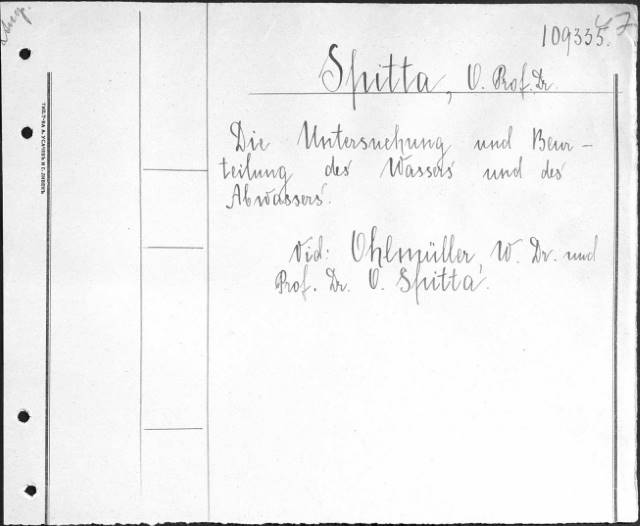 109335.
Spitta, O. Prof. Dr.
Die Untersuchung und Beur-
teilung des Wassers und des
Abwassers.
Vid: Ohlmüller, W. Dr. und
Prof. Dr. O. Spitta.